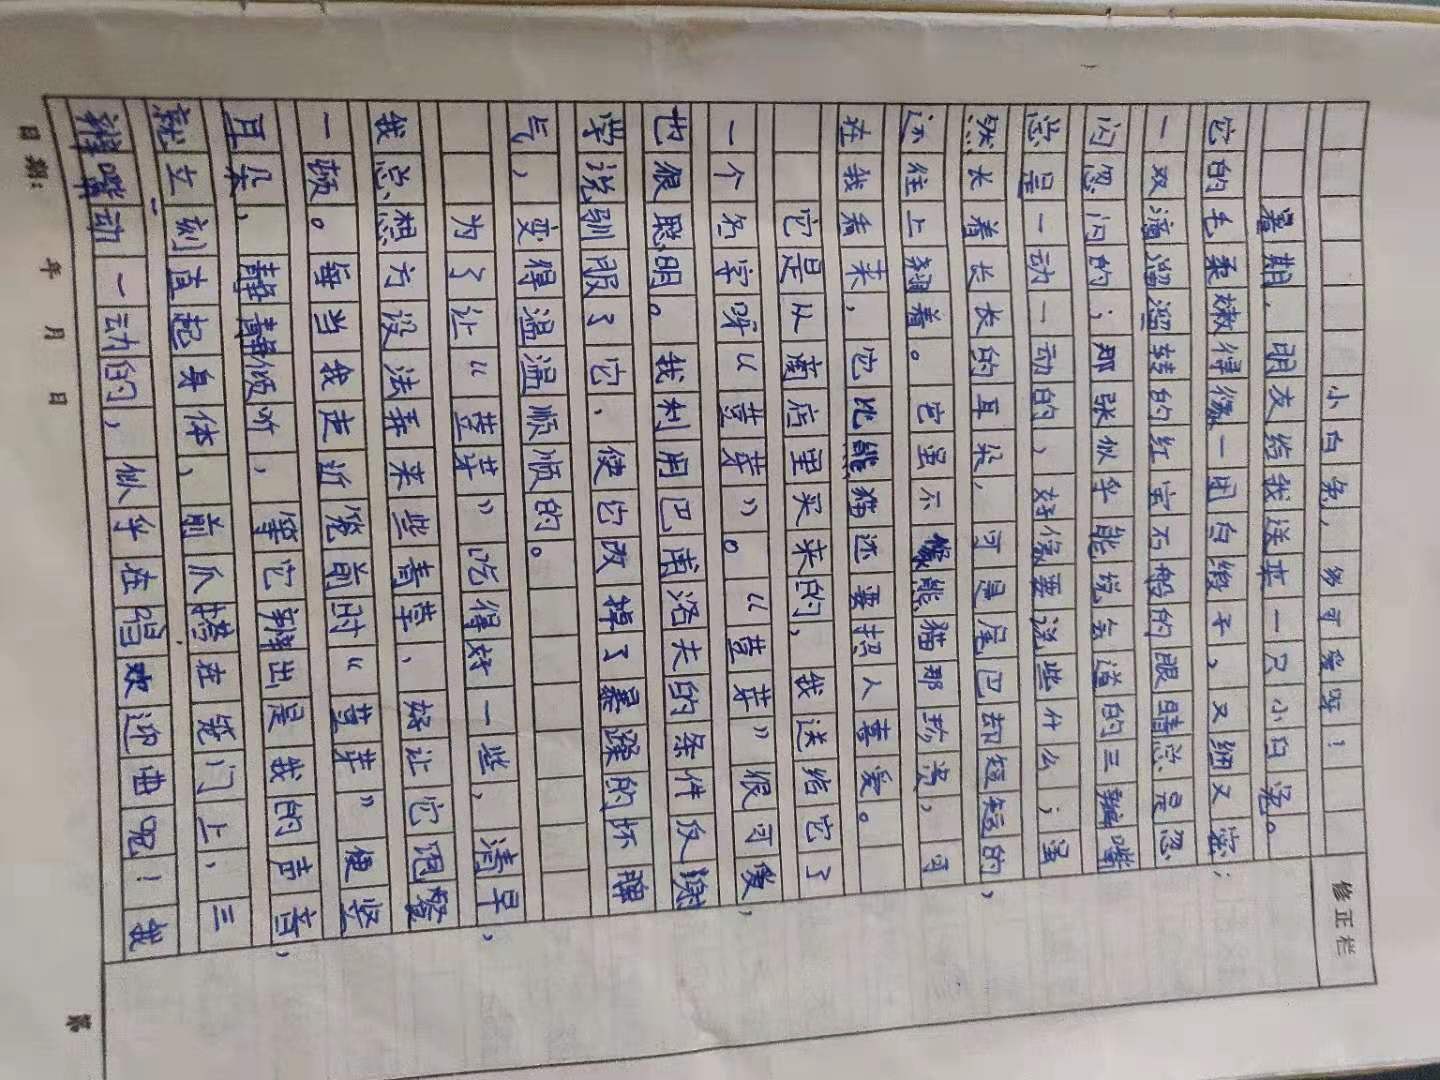 小白兔,多可爱呀!
修正栏
暑期,朋友给我送来一只小白兔。
它的毛柔嫩得像一团白缎子,又细又密;
一双滴溜溜转的红宝石般的眼睛总是忽
闪忽闪的;那张似乎能说会道的三瓣嘴
总是一动一动的,好像要说些什么;虽
然长着长长的耳朵,可是尾巴却短短的,
还往上翘着。它虽不像熊猫那珍贵,可
在我看来,它比熊猫还要招人喜爱。
它是从商店里买来的,我送给它了
一个名字呀“荳芽”。“荳芽”很可爱,
也很聪明。我利用巴甫洛夫的条件反谢
学说驯服了它,使它改掉了暴躁的怀脾
气,变得温温顺顺的。
为了让“荳芽”吃得好一些,清早,
我总想方设法弄来些青草,好让它饱餐
一顿。每当我走近笼前时“荳芽”便竖
耳朵,静静倾听,等它辨出是我的声音,
就立刻直起身体,前爪搭在笼门上,三
瓣嘴动一动的,似乎在唱欢迎曲呢!我
日期: 年 月 日
第